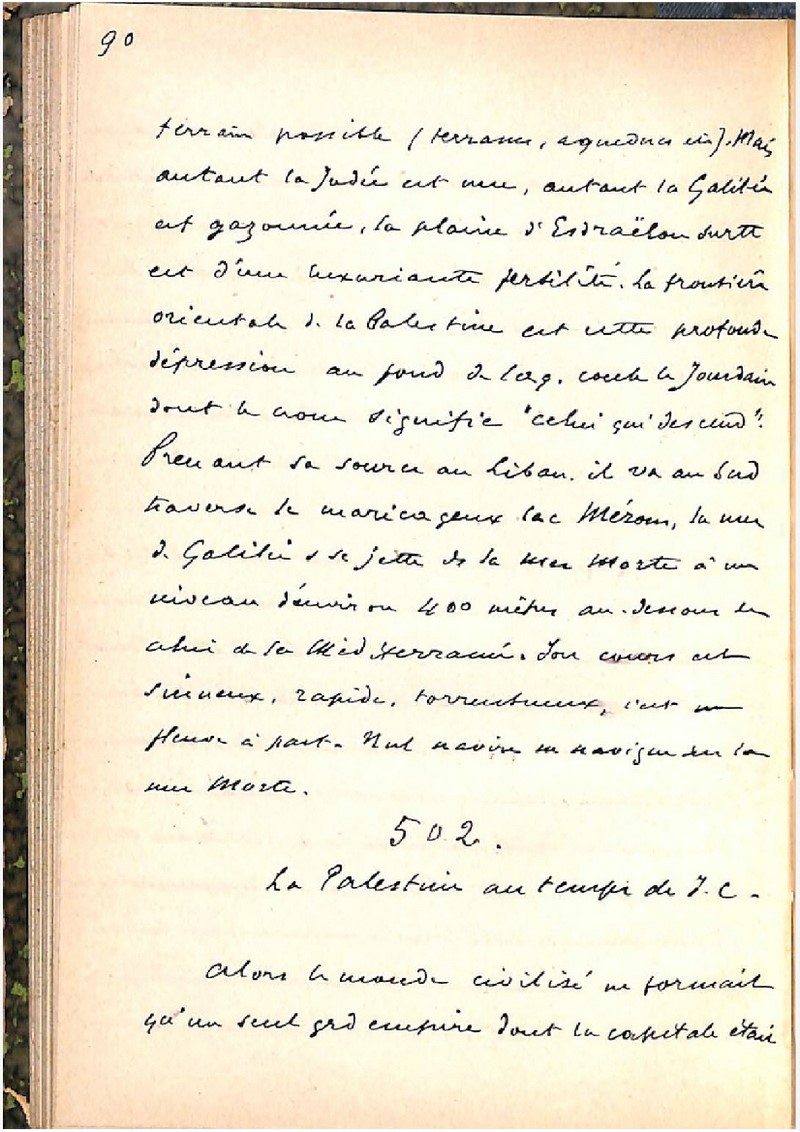 90
terrain possible (terrasses, aqueducs etc). Mais
autant la Judée est nue, autant la Galilée
est gazonnée, la plaine d'Esdraëlon surtt
est d'une luxuriante fertilité. La frontière
orientale de la Palestine est cette profonde
dépression au fond de laq. coule le Jourdain
dont le nom signifie "celui qui descend".
Prenant sa source au Liban. il va au Sud
traverse le marécageux lac Mérom, la mer
de Galilée & se jette ds la mer Morte à un
niveau d'environ 400 mètres au-dessous de
celui de la Méditerranée. Son cours est
sinueux, rapide, torrentueux, c'est un
fleuve à part. Nul navire ne navigue sur la
mer Morte.
502.
La Palestine au temps de J. C.
Alors le monde civilisé ne formait
qu'un seul grd empire dont la capitale était